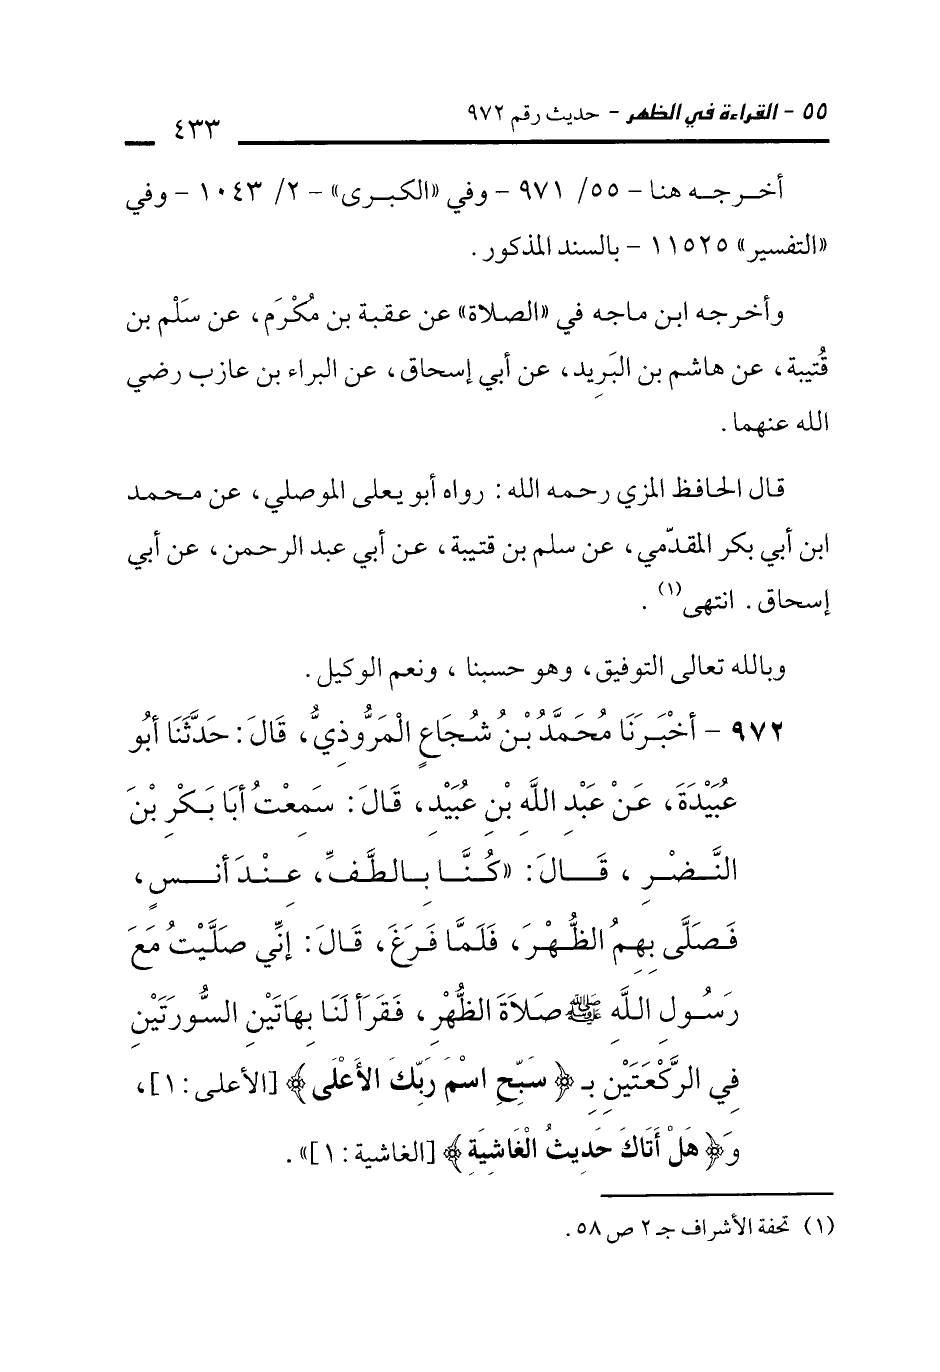 ٥٥ - القراءة في الظهر - حديث رقم ٩٧٢
٤٣٣
أخرجه هنا - ٥٥/ ٩٧١ - وفي «الكبرى» - ٢/ ١٠٤٣ - وفي
«التفسير» ١١٥٢٥ - بالسند المذكور .
وأخرجه ابن ماجه في «الصلاة» عن عقبة بن مُكْرَم، عن سَلْم بن
قُتيبة، عن هاشم بن البَرِيد، عن أبي إسحاق، عن البراء بن عازب رضي
الله عنهما .
قال الحافظ المزي رحمه الله : رواه أبو يعلى الموصلي، عن محمد
ابن أبي بكر المقدّمي، عن سلم بن قتيبة، عن أبي عبد الرحمن، عن أبي
إسحاق . انتهى(١) .
وبالله تعالى التوفيق، وهو حسبنا ، ونعم الوكيل .
٩٧٢ - أَخْبَرَنَا مُحَمَّدُ بْنُ شُجَاعٍ الْمَرُّوذِيُّ، قَالَ : حَدَّثَنَا أَبُو
عُبَيْدَةَ، عَنْ عَبْدِ اللَّهِ بْنِ عُبَيْدٍ، قَالَ : سَمِعْتُ أَبَا بَكْرِ بْنَ
النَّضْرِ ، قَالَ : «كُنَّا بِالطَّفِّ، عِنْدَ أَنَسٍ،
فَصَلَّى بِهِمُ الظُّهْرَ، فَلَمَّا فَرَغَ، قَالَ : إِنِّي صَلَّيْتُ مَعَ
رَسُولِ اللَّهِ ﷺ صَلاَةَ الظُّهْرِ، فَقَرَأَ لَنَا بِهَاتَيْنِ السُّورَتَيْنِ
فِي الرَّكْعَتَيْنِ بِـ ﴿ سَبِّحِ اسْمَ رَبِّكَ الأَعْلَى ﴾ [الأعلى : ١]،
وَ﴿ هَلْ أَتَاكَ حَدِيثُ الْغَاشِيَةِ ﴾ [الغاشية : ١]» .
(١) تحفة الأشراف جـ ٢ ص ٥٨ .